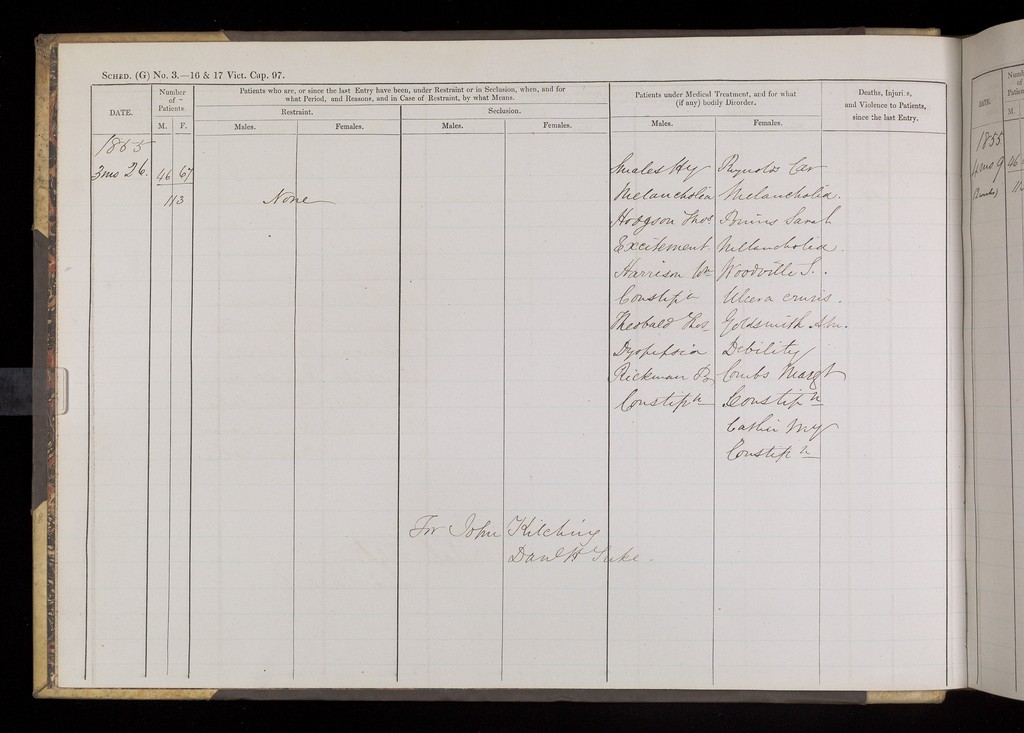 SCHED. (G) No. 3.—16 & 17 Vict. Cap. 97.
DATE.
Number of Patients
M. F.
Patients who are, or since the last Entry have been, under Restraint or in Seclusion, when, and for
what Period, and Reasons, and in Case of Restraint, by what Means.
Restraint.
Seclusion.
Males. Females. Males. Females.
Patients under Medical Treatment, and for what
(if any) bodily Disorder.
Males. Females.
Deaths, Injuries,
and Violence to Patients,
since the last Entry.
1855
3mo 26. 46 67
113
None
Smales Hy Reynolds Car
Melancholia Melancholia.
Hodgson Thos Sarah
Excitement Melancholia.
Harrison Wm Woodville S.
Constipn Ulcera cruris.
Theobald Thos Goldsmith Ann.
Dyspepsia Debility
Rickman B Combs Margt
Constipn Constipn
My
Constipn
For John Kitching
Danl H Tuke.
DATE.
Number
of
Patients
M.
1855
4mo 9 46
(2 weeks) 11